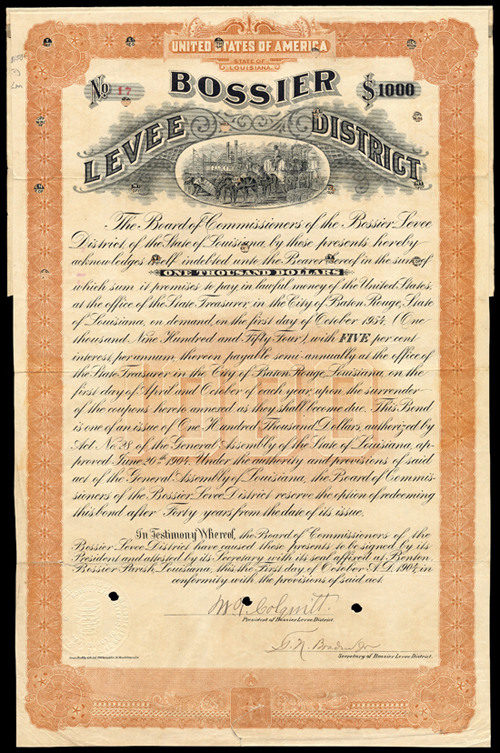 UNITED STATES OF AMERICA
STATE OF
LOUISIANA.
No 17
BOSSIER
$1000
LEVEE DISTRICT
The Board of Commissioners of the Bossier Levee
District of the State of Louisiana, by these presents, hereby
acknowledges itself indebted unto the Bearer hereof in the sum of
ONE THOUSAND DOLLARS
which sum it promises to pay in lawful money of the United States,
at the office of the State Treasurer, in the City of Baton Rouge, State
of Louisiana, on demand, on the first day of October 1954, (One
thousand, Nine Hundred and Fifty Four), with FIVE per cent
interest per annum, thereon payable semi-annually at the office of
the State Treasurer in the City of Baton Rouge, Louisiana, on the
first day of April and October of each year, upon the surrender
of the coupons hereto annexed as they shall become due. This Bond
is one of an issue of One Hundred Thousand Dollars, authorized by
Act No. 28 of the General Assembly of the State of Louisiana, ap-
proved June 20th 1904. Under the authority and provisions of said
act of the General Assembly of Louisiana, the Board of Commis-
sioners of the Bossier Levee District reserve the option of redeeming
this bond after Forty years from the date of its issue.
In Testimony Whereof, the Board of Commissioners of the
Bossier Levee District have caused these presents to be signed by its
President and attested by its Secretary with its seal affixed at Benton,
Bossier Parish, Louisiana, this the First day of October A.D. 1904, in
conformity with the provisions of said act.
Colquitt.
President of Bossier Levee District.
Secretary of Bossier Levee District.